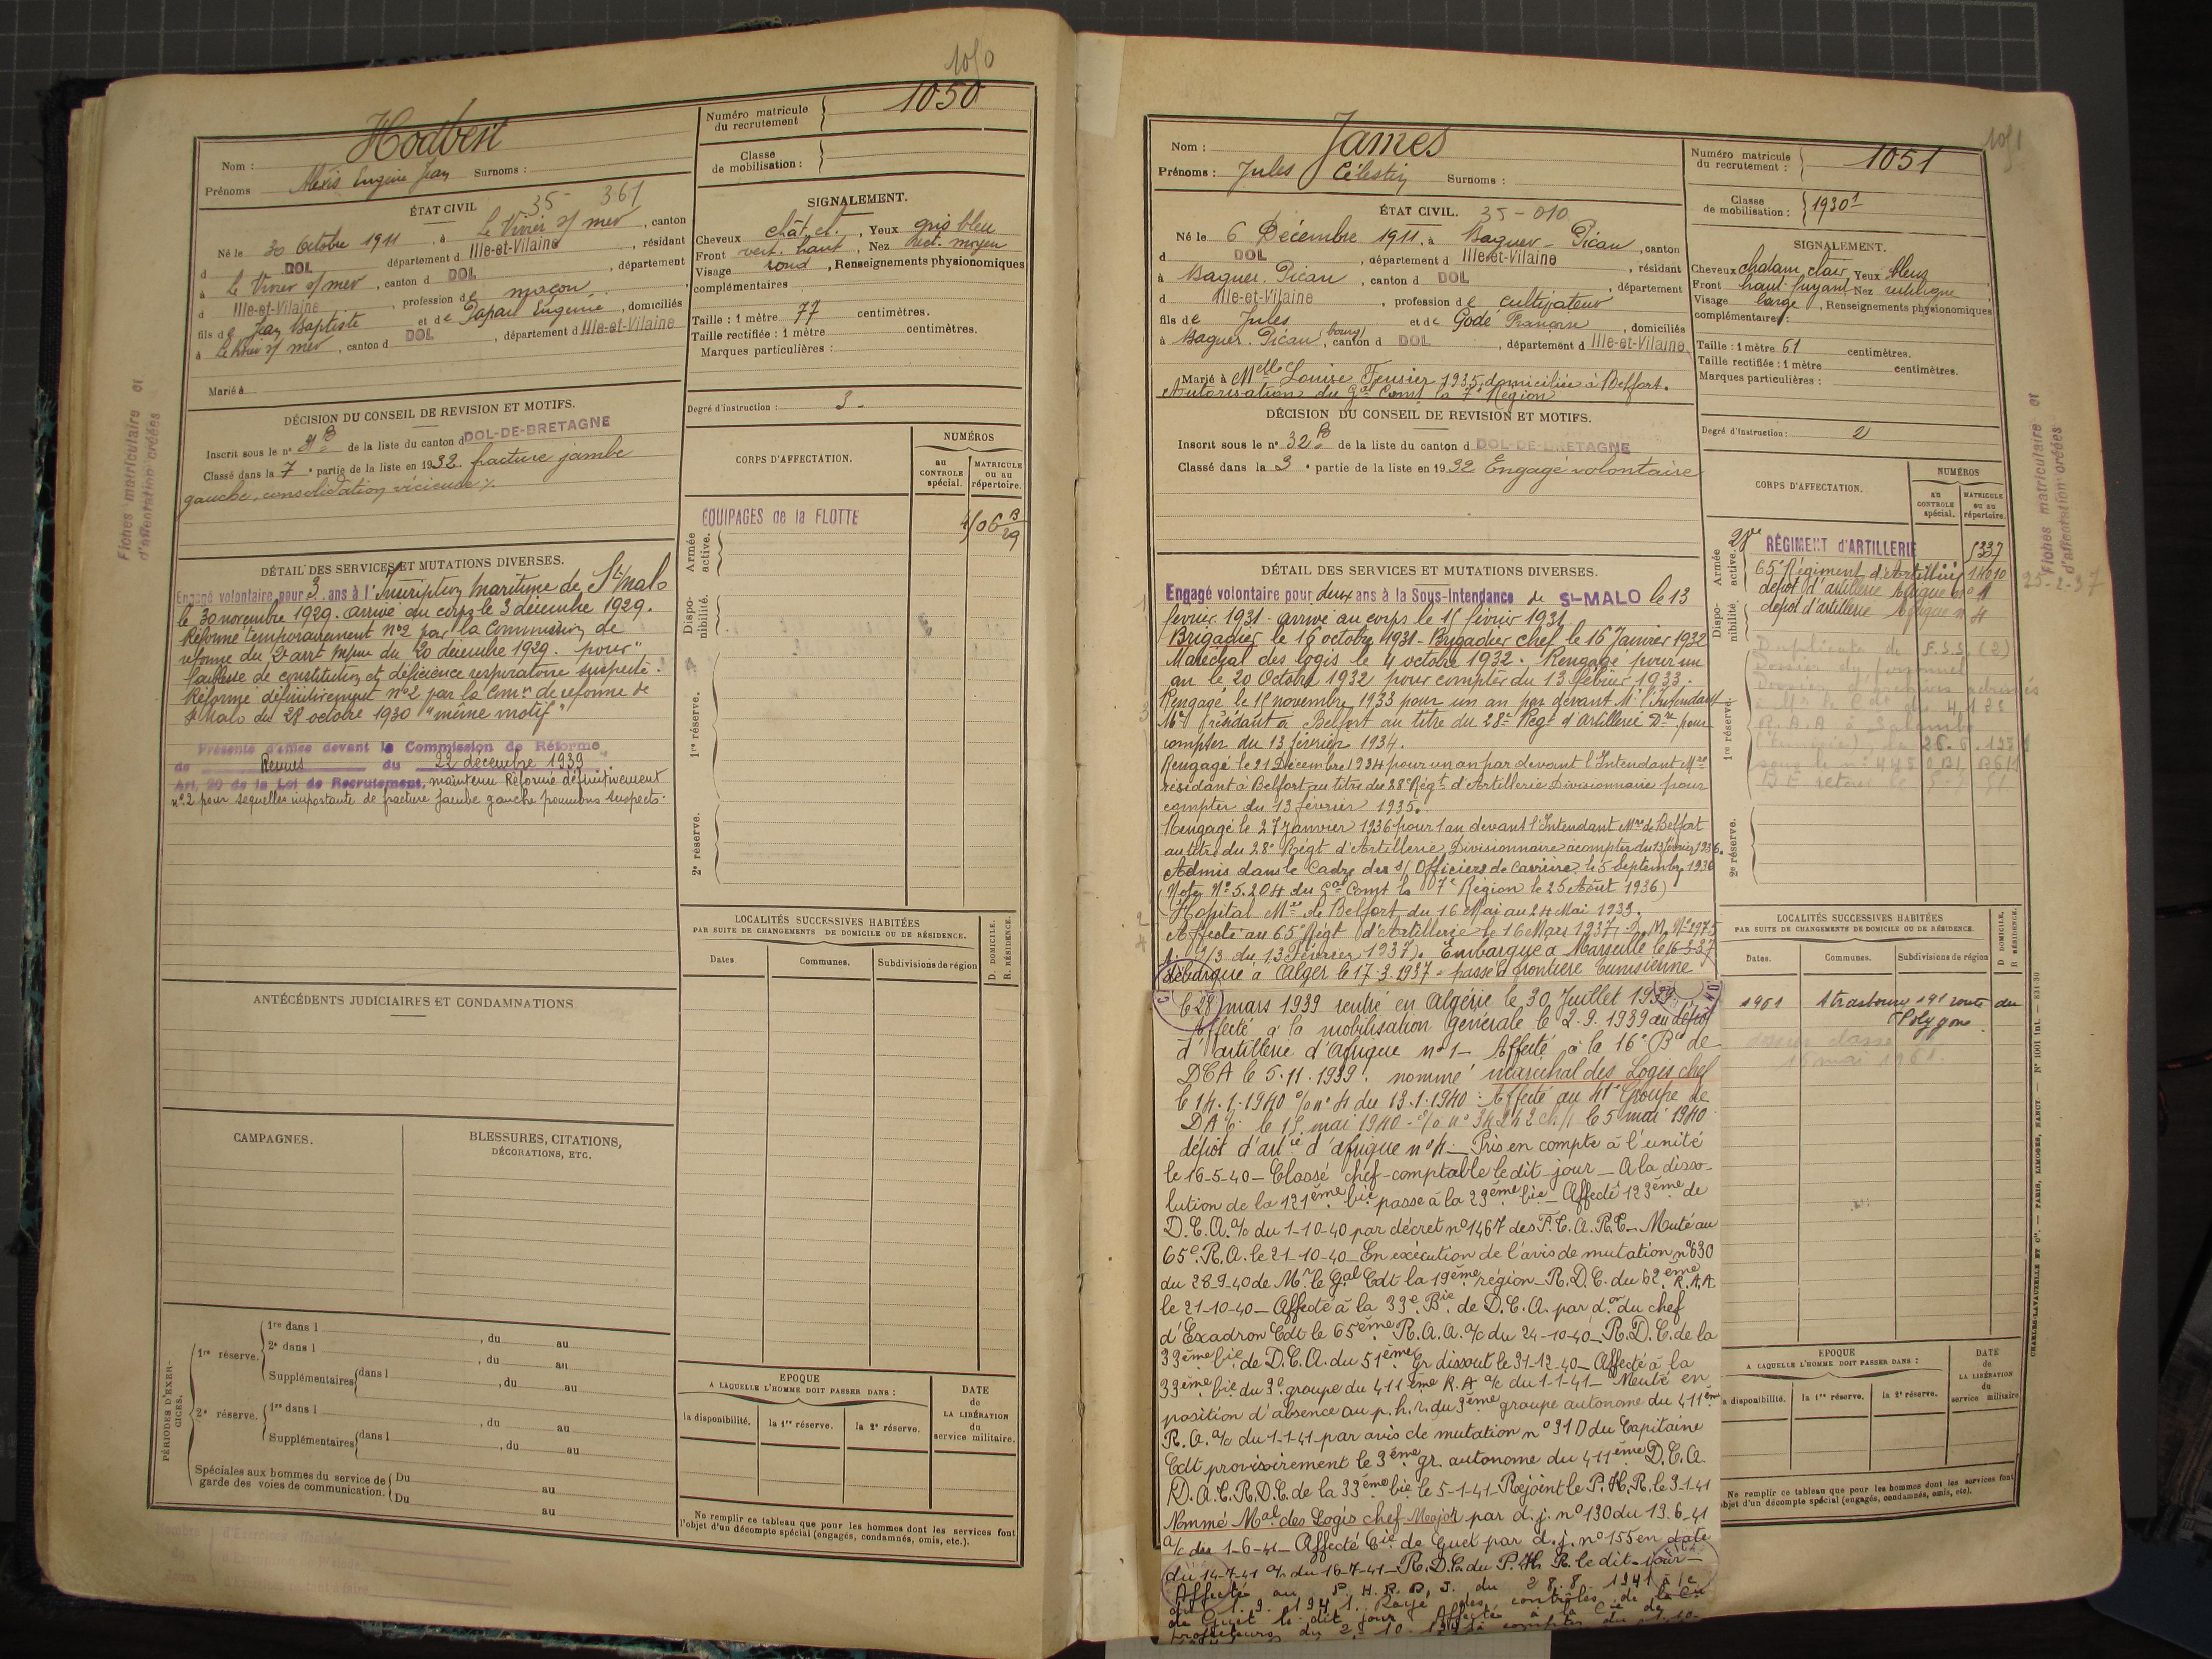 1050
Nom : Hodbert
Prénoms Alexis Eugène Jean Surnoms :
Numéro matricule du recrutement 1050
Classe de mobilisation :
ÉTAT CIVIL 35- 361
Né le 30 Octobre 1911, à Le Vivier s/ mer, canton
d DOL département d Ille-et-Vilaine, résidant
à Le Vivier s/ mer, canton d DOL, département
d Ille-et-Vilaine, profession de maçon
fils de Jean Baptiste et de Eugénie, domiciliés
à Le Vivier s/ mer, canton d DOL, département d Ille-et-Vilaine
Marié à
SIGNALEMENT.
Cheveux chât. cl., Yeux gris bleu
Front vert. haut, Nez rect. moyen
Visage rond, Renseignements physionomiques
complémentaires
Taille : 1 mètre 77 centimètres.
Taille rectifiée : 1 mètre centimètres.
Marques particulières :
Degré d'instruction : 3-
DÉCISION DU CONSEIL DE REVISION ET MOTIFS.
Inscrit sous le n° 21 B de la liste du canton d DOL-DE-BRETAGNE
Classé dans la 7e partie de la liste en 1932. fracture jambe
gauche, consolidation vicieuse %
CORPS D'AFFECTATION.
NUMÉROS
au CONTROLE spécial.
MATRICULE ou au répertoire.
Armée active.
EQUIPAGES de la FLOTTE
Dispo-nibilité.
1re réserve.
2e réserve.
Fiches matriculaire et
d'affectation créées
DÉTAIL DES SERVICES ET MUTATIONS DIVERSES.
Engagé volontaire pour 3 ans à l'Inscription Maritime de St Malo
le 30 novembre 1929. arrivé au corps le 3 décembre 1929.
Réformé temporairement n°2 par la Commission de
réforme du 2e arrt mme du 20 décembre 1929. pour "
faiblesse de constitution et déficience respiratoire suspecte.
Réformé définitivement n°2 par la Comon de réforme de
St Malo du 28 octobre 1930 "même motif"
Présenté d'office devant la Commission de Réforme
de Rennes du 22 décembre 1939
Art. 20 de la Loi de Recrutement, maintenu Réformé définitivement
n° 2 pour sequelles importante de fracture jambe gauche poumons suspects.
ANTÉCÉDENTS JUDICIAIRES ET CONDAMNATIONS
LOCALITÉS SUCCESSIVES HABITÉES
PAR SUITE DE CHANGEMENTS DE DOMICILE OU DE RÉSIDENCE.
Dates. Communes. Subdivisions de région
D. DOMICILE.
R. RÉSIDENCE.
CAMPAGNES.
BLESSURES, CITATIONS,
DÉCORATIONS, ETC.
PÉRIODES D'EXERCICES.
1re réserve.
1re dans l , du au
2e dans l , du au
Supplémentaires dans l , du au
2e réserve.
1re dans l , du au
Supplémentaires dans l , du au
Spéciales aux hommes du service de
garde des voies de communication.
Du au
Du au
EPOQUE
A LAQUELLE L'HOMME DOIT PASSER DANS :
la disponibilité. la 1re réserve. la 2e réserve.
DATE de LA LIBÉRATION du service militaire.
Ne remplir ce tableau que pour les hommes dont les services font
l'objet d'un décompte spécial (engagés, condamnés, omis, etc.).
1051
Nom : James
Prénoms : Jules Célestin Surnoms :
Numéro matricule du recrutement : 1051
Classe de mobilisation : 1930 1
ÉTAT CIVIL. 35-010
Né le 6 Décembre 1911, à Baguer-Pican, canton
d DOL, département d Ille-et-Vilaine, résidant
à Baguer-Pican, canton d DOL, département
d Ille-et-Vilaine, profession de cultivateur
fils de Jules et de Godé Françoise, domiciliés
à Baguer-Pican (bourg), canton d DOL, département d Ille-et-Vilaine
Marié à Melle Louise 1935, domiciliée à Belfort.
Autorisation du Gal Comt la 7e Région
SIGNALEMENT.
Cheveux chatain clair, Yeux bleus
Front haut fuyant, Nez rectiligne
Visage large, Renseignements physionomiques
complémentaires :
Taille : 1 mètre 61 centimètres.
Taille rectifiée : 1 mètre centimètres.
Marques particulières :
Degré d'instruction : 2
DÉCISION DU CONSEIL DE REVISION ET MOTIFS.
Inscrit sous le n° 32 B de la liste du canton d DOL-DE-BRETAGNE
Classé dans la 3e partie de la liste en 1932 Engagé volontaire
CORPS D'AFFECTATION.
NUMÉROS
au CONTROLE spécial.
MATRICULE ou au répertoire.
Armée active.
28e RÉGIMENT d'ARTILLERIE
65e Régiment d'Artillerie
dépôt d'artillerie Afrique n° 1
dépôt d'artillerie Afrique n° 4
Dispo-nibilité.
1re réserve.
2e réserve.
Fiches matriculaire et
d'affectation créées
25-2-37
DÉTAIL DES SERVICES ET MUTATIONS DIVERSES.
Engagé volontaire pour deux ans à la Sous-Intendance de St-MALO le 13
février 1931. arrivé au corps le 15 février 1931
Brigadier le 16 octobre 1931. Brigadier chef le 16 Janvier 1932
Maréchal des logis le 4 octobre 1932. Rengagé pour un
an le 20 Octobre 1932 pour compter du 13 février 1933.
Rengagé le 15 novembre 1933 pour un an par devant Mr l'Intendant
Mre résidant à Belfort au titre du 28e Regt d'artillerie Dre pour
compter du 13 février 1934.
Rengagé le 21 Décembre 1934 pour un an par devant l'Intendant Mre
résidant à Belfort au titre du 28e Régt d'Artillerie Divisionnaire pour
compter du 13 février 1935.
Rengagé le 27 janvier 1936 pour 1 an devant l'Intendant Mre de Belfort
au titre du 28e Régt d'Artillerie Divisionnaire à compter du 13 février 1936.
Admis dans le Cadre des s/ Officiers de Carrière le 5 Septembre 1936
(Note N° 5.204 du Gal Comt la 7e Région le 25 Août 1936)
Hopital Mre de Belfort du 16 Mai au 24 Mai 1933.
Affecté au 65e Régt d'Artillerie le 16 Mars 1937,
du 13 Février 1937). Embarqué à Marseille le 16-3-37
débarqué à Alger le 17-3-1937 - passé la frontière tunisienne
le 28 mars 1939 rentré en Algérie le 30 Juillet 1939
Affecté à la mobilisation générale le 2.9.1939 au dépôt
d'artillerie d'Afrique n° 1 - Affecté à la 16e Bie de
DCA le 5.11.1939. nommé marechal des Logis chef
le 14.1.1940 o/ n° 4 du 13.1.1940. Affecté au 41e Groupe de
le 15 mai 1940 - le 5 mai 1940
dépôt d'artie d'afrique n° 4 - Pris en compte à l'unité
le 16-5-40 - Classé chef-comptable le dit jour - A la disso-
lution de la 121ème bie passe à la 23ème bie - Affecté 123ème de
D.C.A. a/c du 1-10-40 par décret n° 1467 des F.T.A.R.C. - Muté au
65e R.A. le 21-10-40 - En exécution de l'avis de mutation n° 630
du 28-9-40 de Mr le Gal Cdt la 19ème région - R.D.C. du 62ème R.A.A.
le 21-10-40 - Affecté à la 33e Bie de D.C.A. par d. du chef
d'Exadron Cdt le 65ème R.A.A. a/c du 24-10-40 - R.D.C. de la
33ème bie de D.C.A. du 51ème gr dissout le 31-12-40 - Affecté à la
33ème bie du 3e groupe du 411ème R.A. a/c du 1-1-41 - Muté en
position d'absence au p.h.r. du 3ème groupe autonome du 411ème
R.A. a/c du 1-1-41 par avis de mutation n° 31 D du Capitaine
Cdt provisoirement le 3ème gr. autonome du 411ème D.C.A.
D.A.C. R.D.C. de la 33ème bie le 5-1-41 - Rejoint le P.H.R. le 9-1-41
Nommé Mal des Logis chef Major par d.j. n° 130 du 13.6.41
a/c du 1-6-41 - Affecté Cie de Guet par d.j. n° 155 en date
du 14-7-41 a/c du 16-7-41 - R.D.C. du P.H.R. le dit jour -
Affecté au P.H.R. D.J. du 28.8.1941 à/c
du 1.9.1941. Rayé des contrôles de la Cie
de Guet le dit jour. Affecté à la Cie de
du 2-10-1941 à compter du
LOCALITÉS SUCCESSIVES HABITÉES
PAR SUITE DE CHANGEMENTS DE DOMICILE OU DE RÉSIDENCE.
Dates. Communes. Subdivisions de région
D DOMICILE.
R RÉSIDENCE.
1961 Strasbourg 191 route du
Polygone
EPOQUE
A LAQUELLE L'HOMME DOIT PASSER DANS :
la disponibilité. la 1re réserve. la 2e réserve.
DATE de LA LIBÉRATION du service militaire
Ne remplir ce tableau que pour les hommes dont les services font
objet d'un décompte spécial (engagés, condamnés, omis, etc).
CHARLES-LAVAUZELLE ET Cie. — PARIS, LIMOGES, NANCY — N° 1001 Int. — 831-30